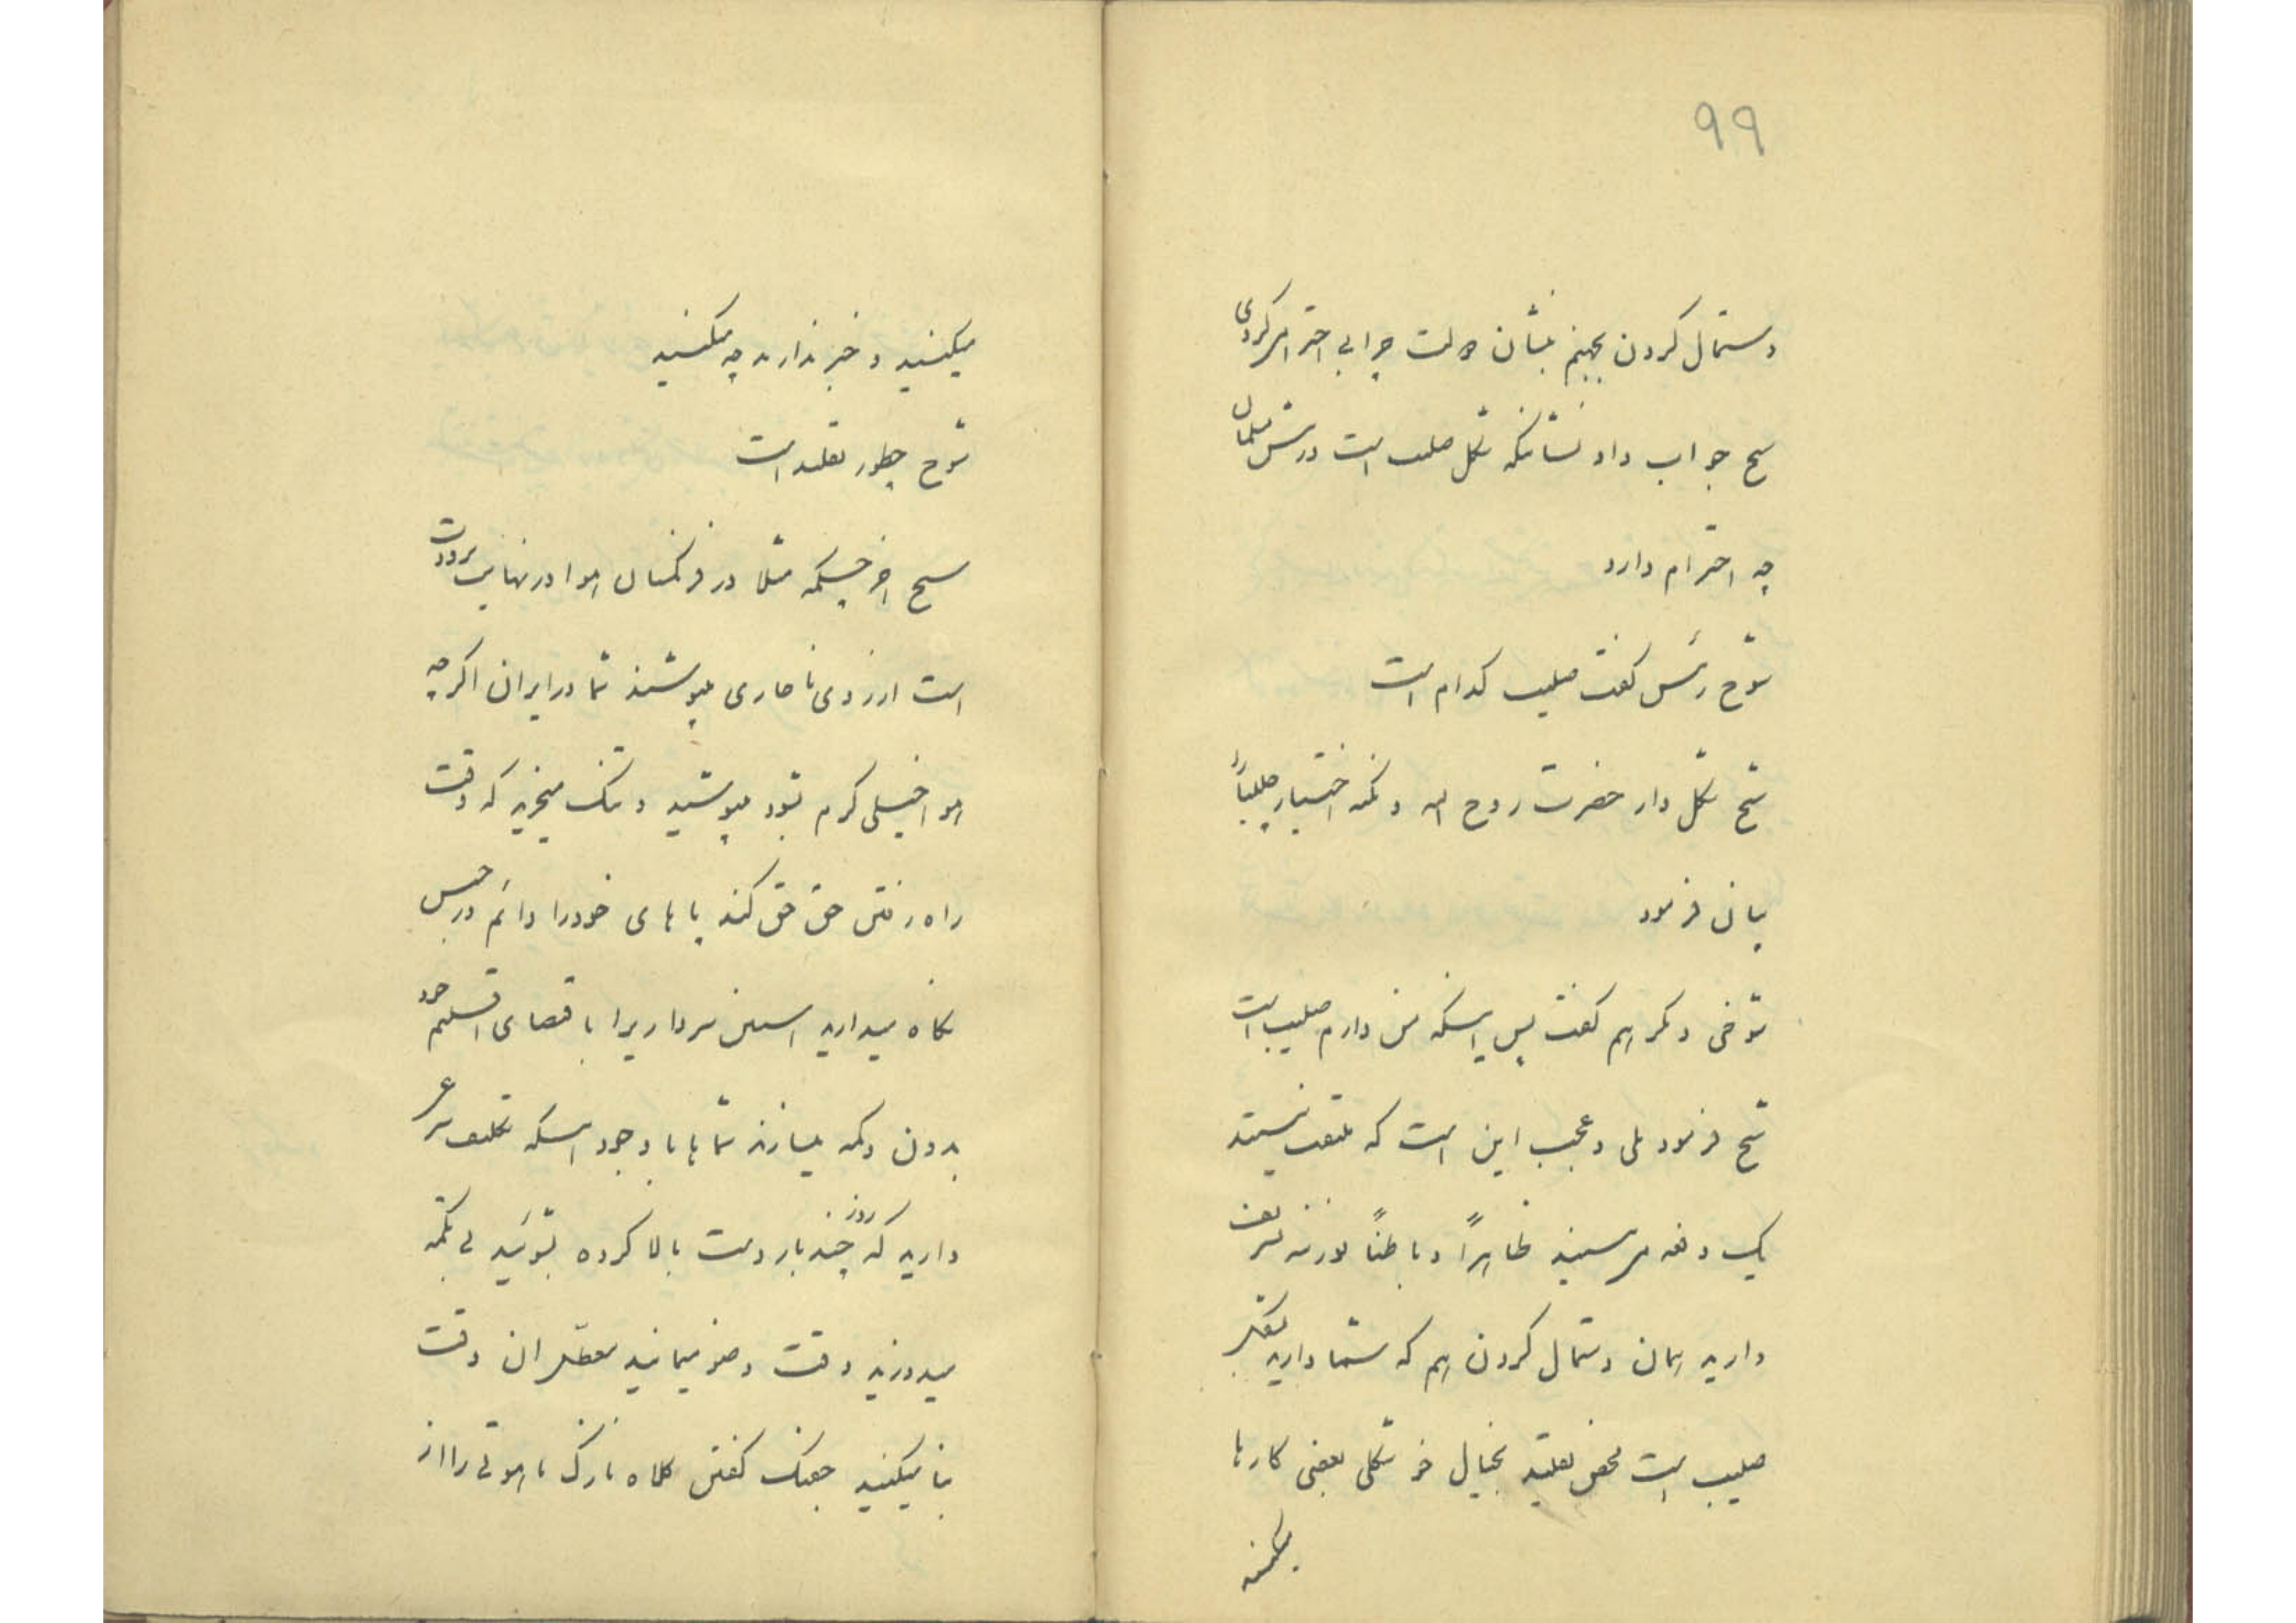 ۹۹
دستمال کردن بجهنم بنشان دولت چرا بی احترامی کردی
شیخ جواب داد نشانیکه شکل صلیب است در پیش مسلمان
چه احترام دارد
شوخ رئیس گفت صلیب کدام است
شیخ شکل دار حضرت روح الله و تکمه اختیار صلیب را
بیان فرمود
شوخی دیگر هم گفت پس اینکه من دارم صلیب است
شیخ فرمود بلی و عجب این است که ملتفت نیستید
یک دفعه میرسید ظاهراً و باطناً تشریف
دارید همان دستمال کردن هم که شما دارید
صلیب است محض تقلید بخیال خوشکلی بعضی کارها
میکنید
میکنید و خبر ندارید چه میکنید
شوخ چطور تقلید است
شیخ اخر چیکمه مثلا در فرنگستان هوا در نهایت برودت
است ارزوی ناچاری میپوشند شما در ایران اگر چه
هوا خیلی گرم بشود میپوشید و تنگ میخرید که وقت
راه رفتن حق حق کند پاهای خود را دائم در حبس
نگاه میدارید استین سرداریرا باقتضای اقلیم خود
بدون دکمه میسازند شماها با وجود اینکه تکلیف شرعی
دارید که روز چند بار دست بالا کرده بشوئید بی تکمه
میدوزید وقت وضو میمانید معطل ان وقت
بنا میکنید جفتک کفش کلاه نازک ماهوتی را از